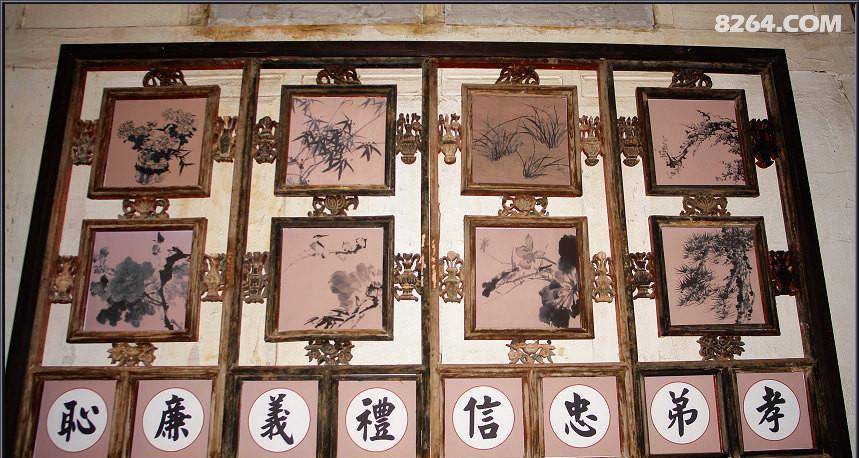 8264.COM
孝弟忠信禮義廉恥